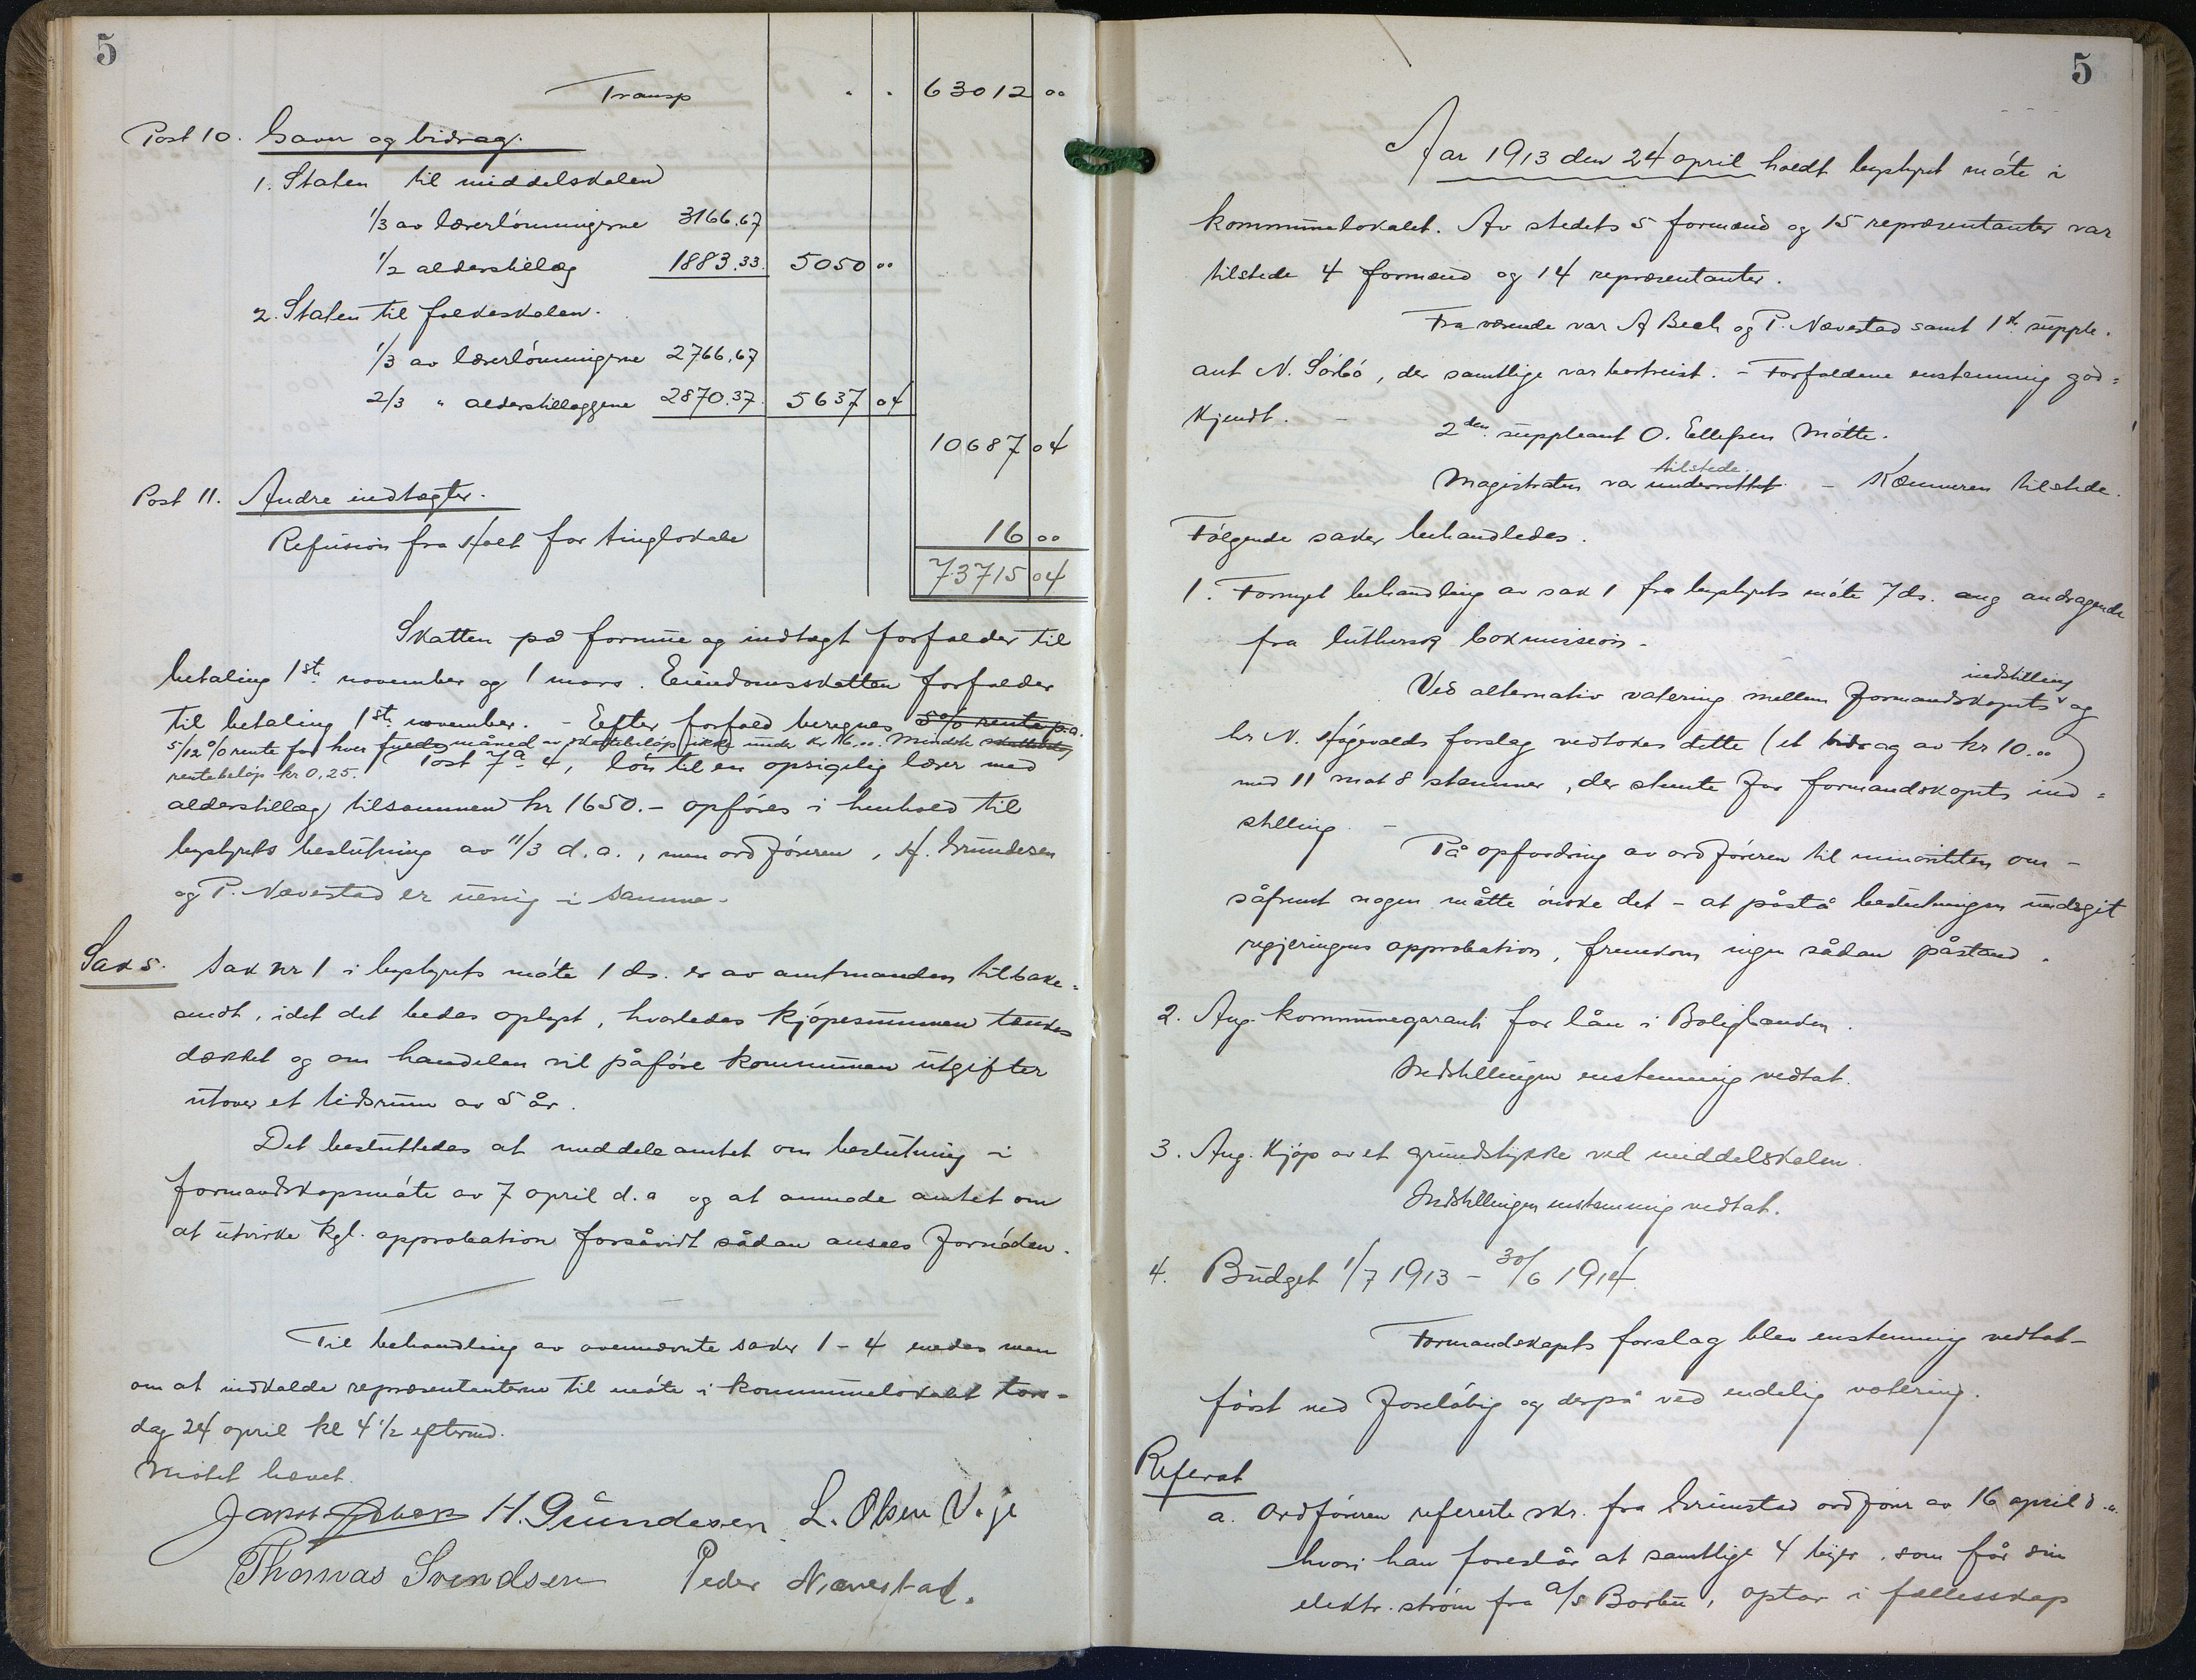 5
Transp " " 63012 00
Post 10. Gaver og bidrag.
1. Staten til middelskolen
1/3 av lærerlönningerne 3166.67
1/2 alderstillæg 1883.33. 5050 00
2. Staten til folkeskolen.
1/3 av lærerlönningerne 2766.67
2/3 " alderstillæggene 2870.37. 5637 04
10687 04
Post 11. Andre indtægter.
Refusion fra Holt for tinglokale 16 00
73715 04
Skatten på formue og indtægt forfalder til
betaling 1ste november og 1 mars. Eiendomsskatten forfalder
til betaling 1ste november. - Efter forfald beregnes 5% rente p.a.
5/12 % rente for hver måned av skattebelöp ikke under kr 16.00. Mindste
rentebelöp kr 0,25.
Post 7a 4, lön til en opsigelig lærer med
alderstillæg tilsammen kr 1650.- opföres i henhold til
bystyrets beslutning av 11/3 d.a., men ordföreren, H. Gundesen
og P. Nævestad er uenig i samme.
Sak 5. Sak nr 1 i bystyrets möte 1 ds. er av amtmanden tilbake-
sendt, idet det bedes oplyst, hvorledes kjöpesummen tænkes
dækket og om handelen vil påföre kommunen utgifter
utover et tidsrum av 5 år.
Det besluttedes at meddele amtet om beslutning i
formandskapsmöte av 7 april d.a og at anmode amtet om
at utvirke kgl. approbation forsåvidt sådan ansees fornöden.
Til behandling av ovennævnte saker 1 - 4 enedes man
om at indkalde repræsentanterne til möte i kommunelokalet tors-
dag 24 april kl 4 1/2 eftermd.
Mötet hævet.
H. Gundesen L. Olsen Veje
Thomas Svendsen Peder Nævestad.
5
Aar 1913 den 24 april holdt bystyret möte i
kommunelokalet. Av stedets 5 formænd og 15 repræsentanter var
tilstede 4 formænd og 14 repræsentanter.
Fraværende var A Bech og P. Nævestad samt 1ste supple-
ant N. Sörbö, der samtlige var bortreist. - Forfaldene enstemmig god-
kjendt. -
2den suppleant O. Ellefsen mötte.
tilstede
Magistraten var underrettet. - Kæmneren tilstede.
Fölgende saker behandledes.
1. Fornyet behandling av sak 1 fra bystyrets möte 7 ds. ang andragende
fra luthersk Bokmission.
indstilling
Ved alternativ votering mellem formandskapets og
hr N. Högevolds forslag vedtokes dette (et bidrag av kr 10.00)
med 11 mot 8 stemmer, der stemte for formandskapets ind-
stilling. -
På opfordring av ordföreren til minoriteten om -
såfremt nogen måtte önske det - at påstå beslutningen undergit
regjeringens approbation, fremkom ingen sådan påstand.
2. Ang. kommunegaranti for lån i Boligbanken.
Indstillingen enstemmig vedtat.
3. Ang. kjöp av et grundstykke ved middelskolen.
Indstillingen enstemmig vedtat.
4. Budget 1/7 1913 - 30/6 1914
Formandskapets forslag blev enstemmig vedtat -
först ved foreløbig og derpå ved endelig votering.
Referat
a. Ordföreren refererte skr. fra Grimstad ordförer av 16 april d.a.
hvori han foreslår at samtlige 4 byer, som får sin
elektr. ström fra A/S Borbu, optar i fællesskap